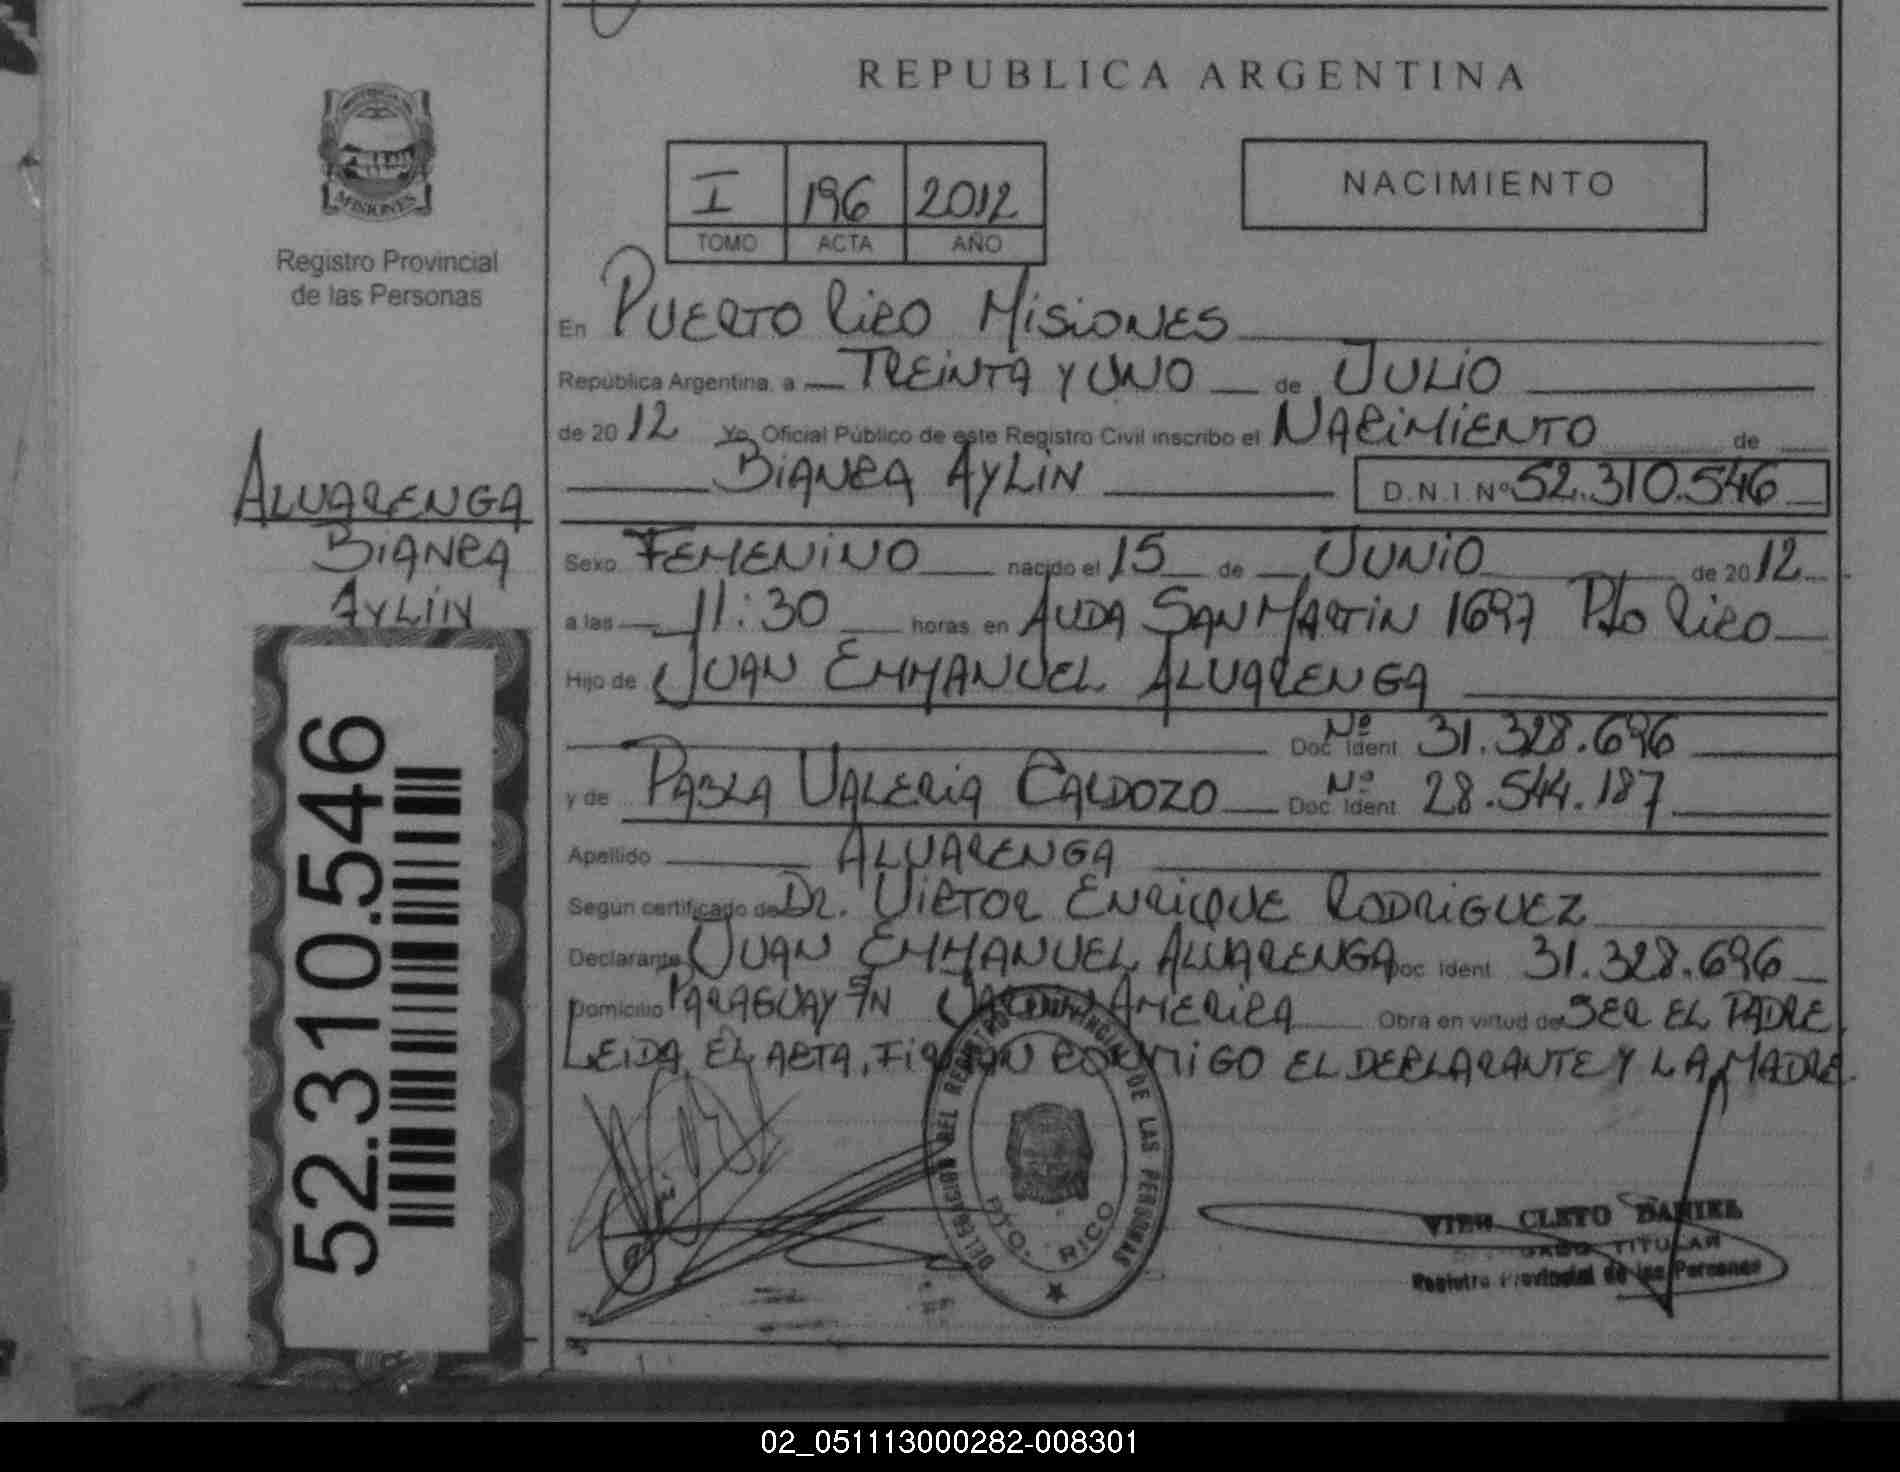 REPUBLICA ARGENTINA
MISIONES
Registro Provincial
de las Personas
I 196 2012
TOMO ACTA AÑO
NACIMIENTO
En PUERTO RICO MISIONES
República Argentina, a TREINTA Y UNO de JULIO
de 2012 Yo, Oficial Público de este Registro Civil inscribo el NACIMIENTO de
BIANCA AYLIN D.N.I. Nº 52.310.546
ALVARENGA
BIANCA
AYLIN
Sexo FEMENINO nacido el 15 de JUNIO de 2012
a las 11:30 horas en AVDA SAN MARTIN 1697 Pto RICO
Hijo de JUAN EMMANUEL ALVARENGA
Doc. Ident Nº 31.328.696
y de PABLA VALERIA CARDOZO Doc. Ident Nº 28.544.187
Apellido ALVARENGA
Según certificado de DR. VICTOR ENRIQUE RODRIGUEZ
Declarante JUAN EMMANUEL ALVARENGA Doc. Ident 31.328.696
Domicilio PARAGUAY S/N JARDIN AMERICA Obra en virtud de SER EL PADRE
LEIDA EL ACTA, FIRMAN CONMIGO EL DECLARANTE Y LA MADRE
52.310.546
DEL REGISTRO PROVINCIAL DE LAS PERSONAS
PTO. RICO
CLETO DANIEL
TITULAR
Registro Provincial de las Personas
02_051113000282-008301